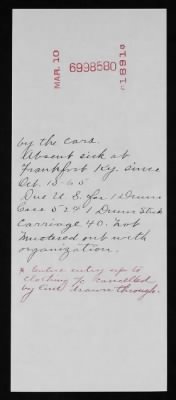 MAR. 10 6998580 1891
by the card.
Absent sick at
Frankfort Ky. since
Oct. 15-65
Due U.S. for 1 Drum
Case 52¢ 1 Drum Stick
Carriage 40. Not
mustered out with
organization.
* Entire entry up to
clothing % cancelled
by line drawn through.